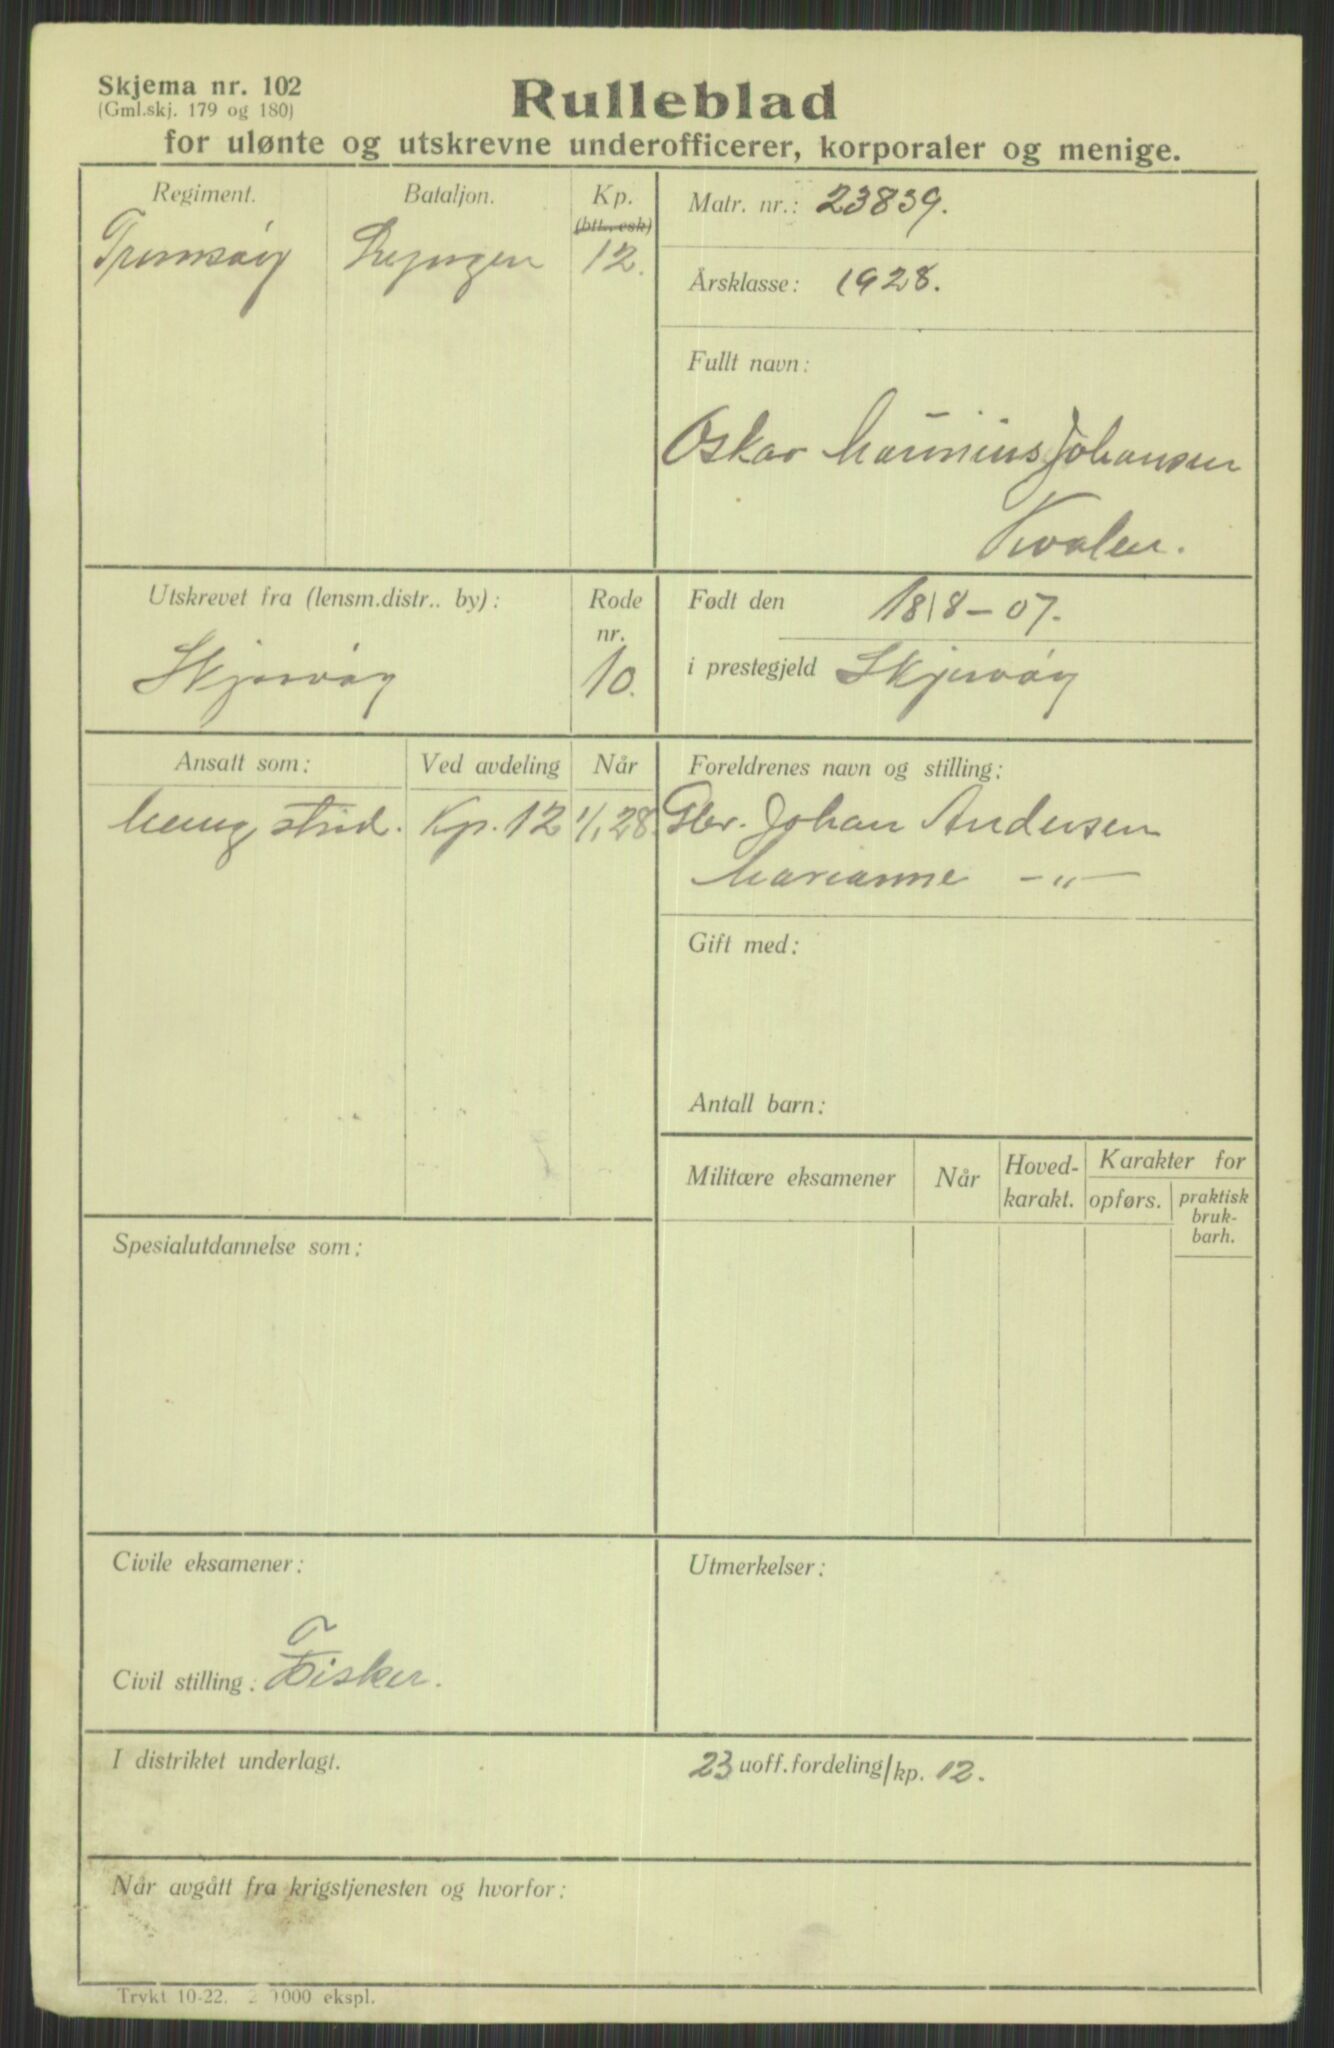 Skjema nr. 102
(Gml.skj. 179 og 180)
Rulleblad
for ulønte og utskrevne underofficerer, korporaler og menige.
Regiment.
Bataljon.
Kp.
(btt. esk)
Tromsøig
Lyngen
12.
Matr. nr.: 23839.
Årsklasse: 1928.
Fullt navn:
Oskar Maurnius Johansen
Kvalen.
Utskrevet fra (lensm.distr.. by):
Rode
nr.
Skjervøy
10.
Født den 18/8-07.
i prestegjeld Skjervøy
Ansatt som:
Ved avdeling
Når
menig strid.
Kp. 12
1/1 28.
Foreldrenes navn og stilling:
Gbr. Johan Andersen
Marianne -"-
Gift med:
Antall barn:
Militære eksamener
Når
Hoved-
karakt.
Karakter for
opførs.
praktisk
bruk-
barh.
Spesialutdannelse som:
Civile eksamener:
Civil stilling: Fisker.
Utmerkelser:
I distriktet underlagt.
23 uoff.fordeling/kp. 12.
Når avgått fra krigstjenesten og hvorfor:
Trykt 10-22. 2 0000 ekspl.